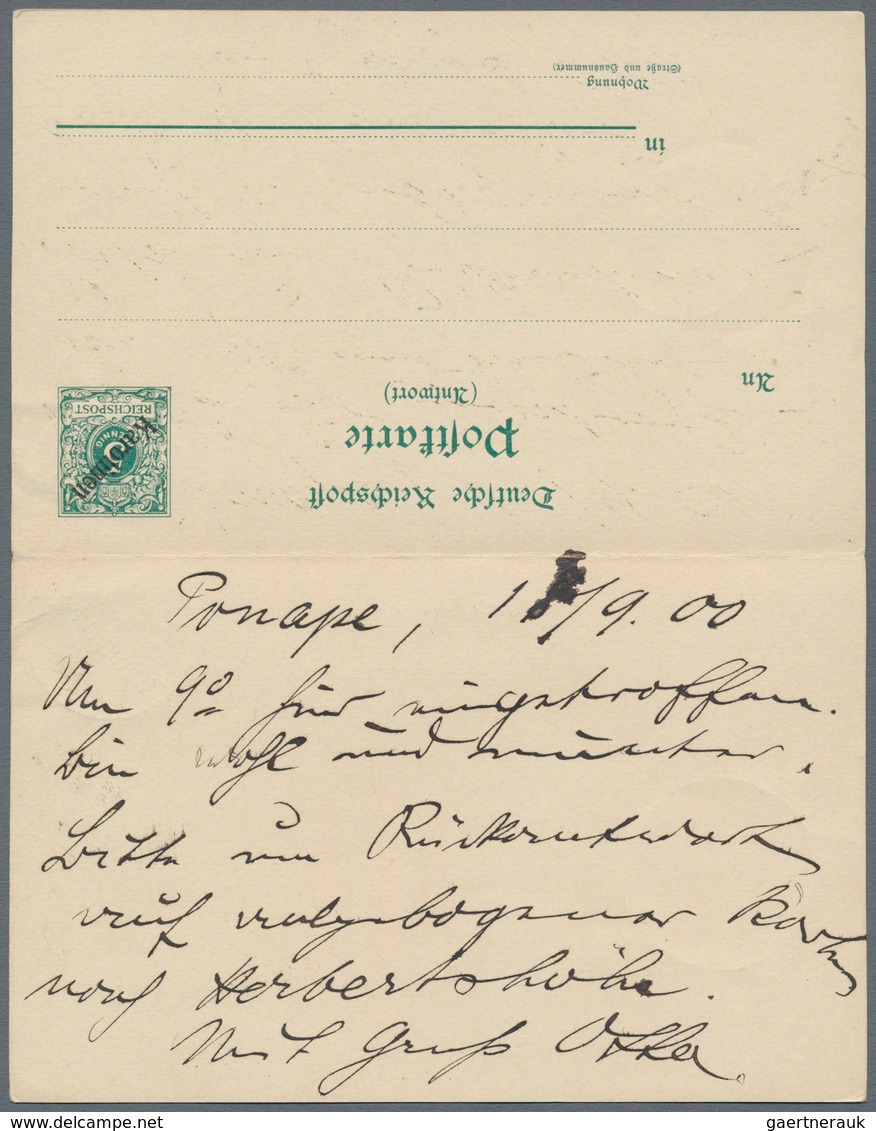 Wohnung
(Straße und Hausnummer)
in
An
(Antwort)
Postkarte
Deutsche Reichspost
REICHSPOST
5
PFENNIG
Karolinen
Ponape, 1 /9. 00
Um 9º hier eingetroffen.
Bin wohl und munter.
Bitte um Rückantwort
auf umgebogener Karte
nach Herbertshöhe.
Mit Gruß Otto.
gaertnerauk